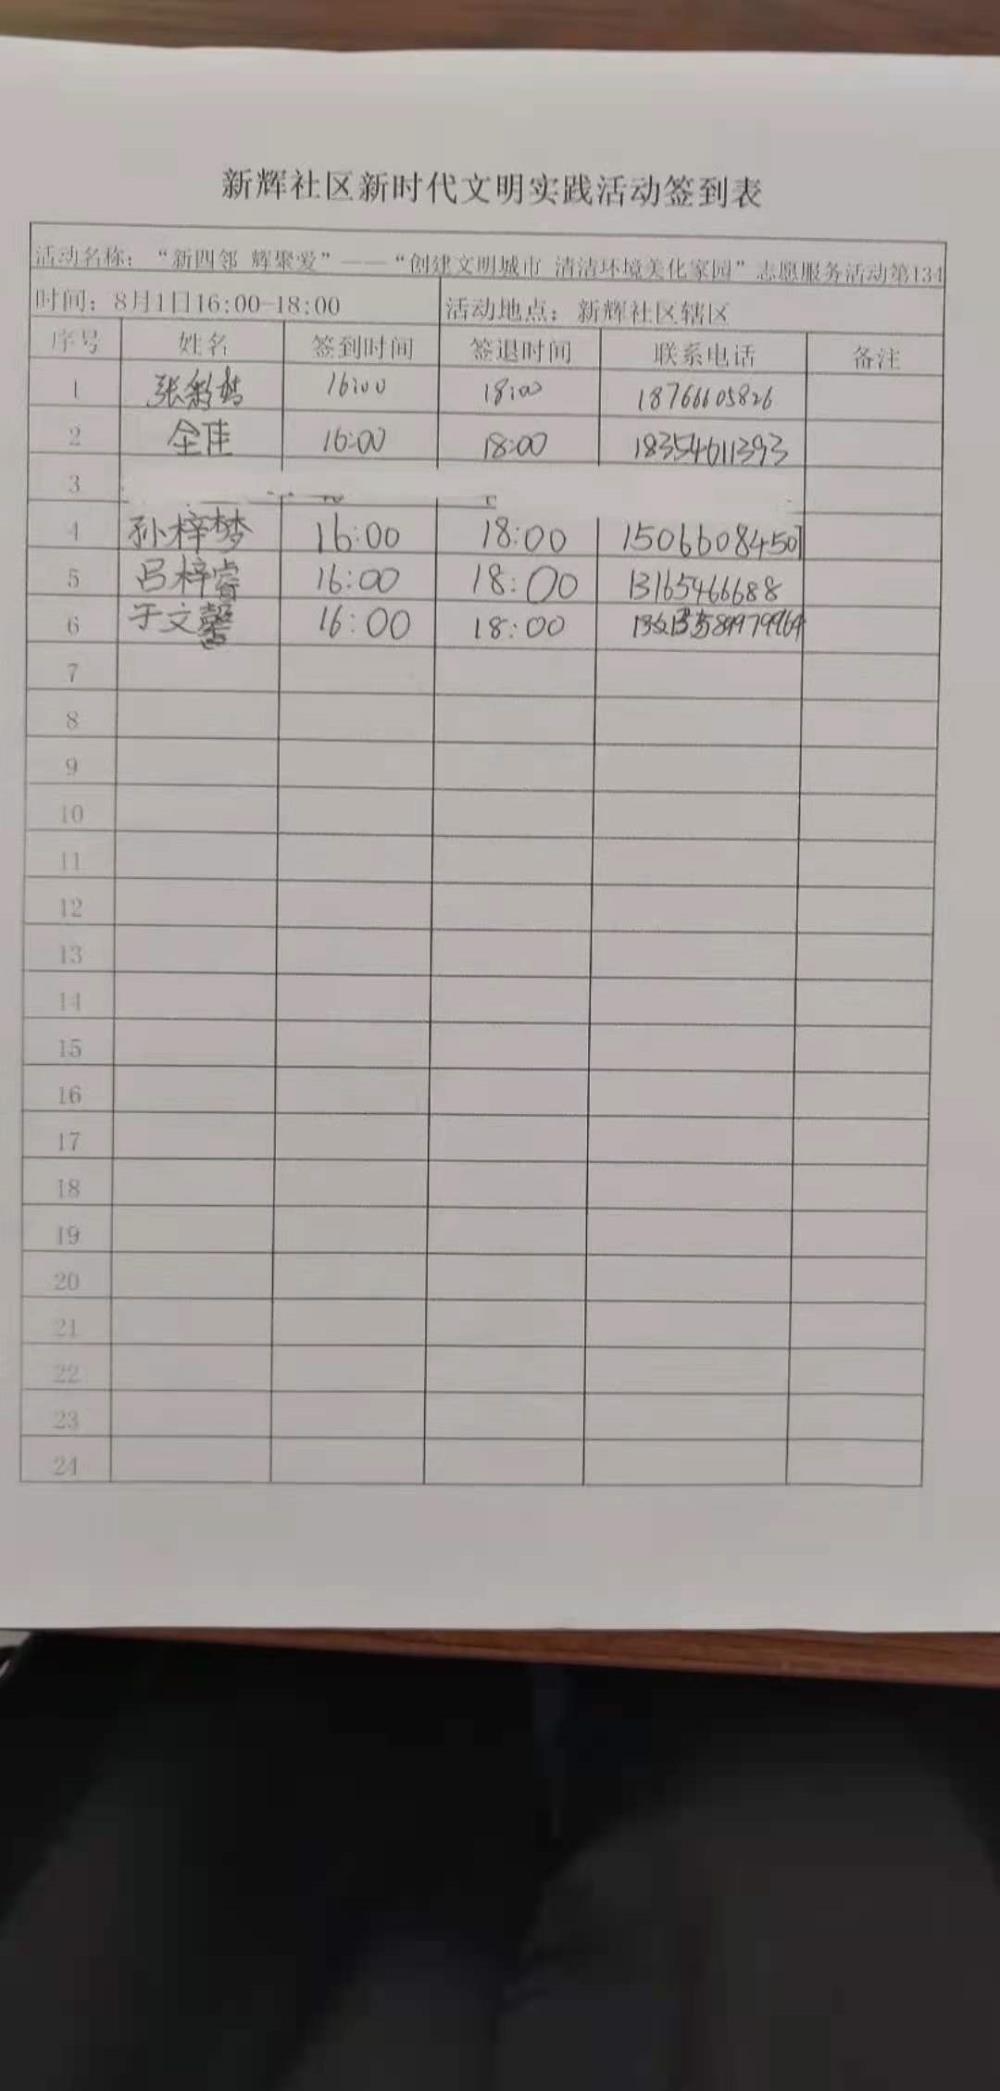 新辉社区新时代文明实践活动签到表
活动名称：“新四邻 辉聚爱”——“创建文明城市 清洁环境美化家园”志愿服务活动第134
时间：8月1日16:00-18:00 活动地点：新辉社区辖区
序号 姓名 签到时间 签退时间 联系电话 备注
1 张 16:00 18:00 18766605826
2 全佳 16:00 18:00 18354611393
3
4 孙梓梦 16:00 18:00 15066084501
5 吕梓睿 16:00 18:00 13165466688
6 于文馨 16:00 18:00
7
8
9
10
11
12
13
14
15
16
17
18
19
20
21
22
23
24